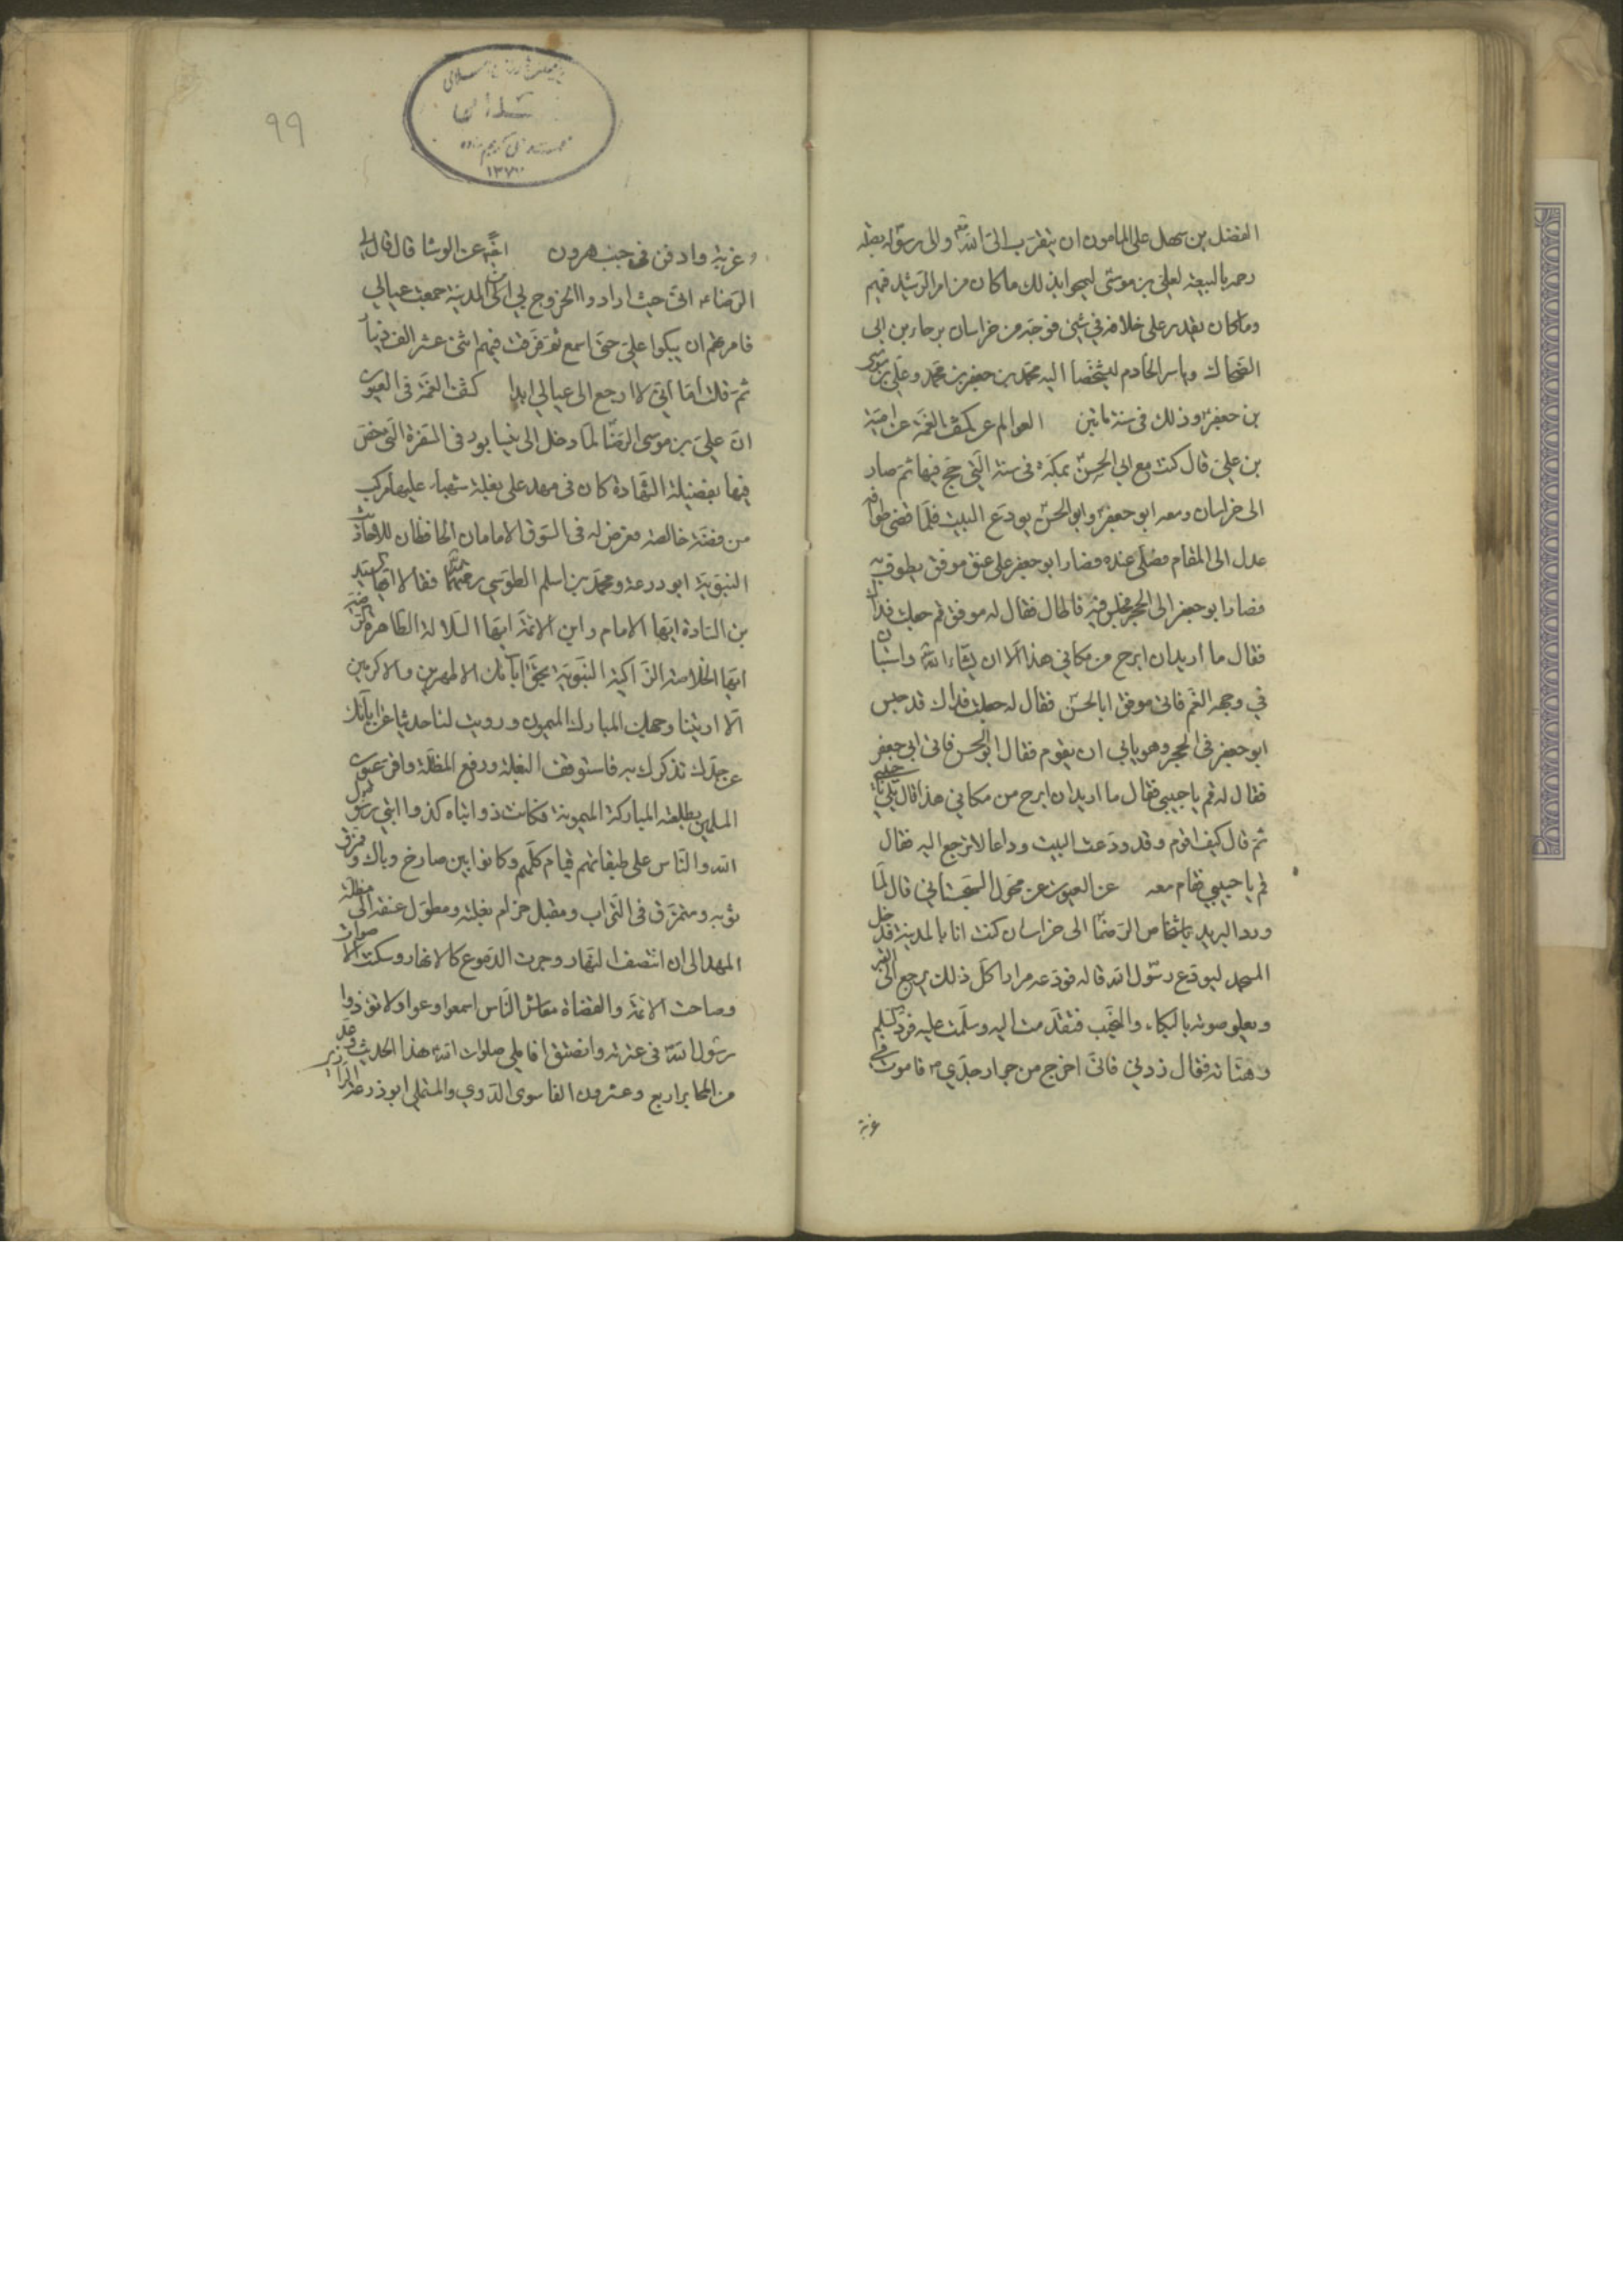 الفضل بن سهل على المأمون ان يتقرب الى الله تعالى والى رسوله بصلة
رحمه بالبيعة لعلى بن موسى ليمحو ابذلك ما كان من امر الرشيد فيهم
وما كان يقدر على خلافه في شئ فوجه من خراسان برجاء بن ابى
الضحاك وياسر الخادم ليشخصا اليه محمد بن جعفر بن محمد وعلى بن موسى
بن جعفر وذلك فى سنة مأتين العوالم عن كشف الغمة عن امية
بن على قال كنت مع ابي الحسن بمكة فى سنة التي حج فيها ثم صار
الى خراسان ومعه ابو جعفر وابو الحسن يودع البيت فلما قضى طوافه
عدل الى المقام فصلى عنده فصار ابو جعفر على عنق موفق يطوف به
فصار ابو جعفر الى الحجر فجلس فيه فاطال فقال له موفق قم جعلت فداك
فقال ما اريد ان ابرح من مكاني هذا الا ان يشاء الله واستبان
في وجهه الغم فاتى موفق ابا الحسن فقال له جعلت فداك قد جلس
ابو جعفر فى الحجر وهو يابى ان يقوم فقام ابو الحسن فاتى ابى جعفر
فقال له قم يا حبيبي فقال ما اريد ان ابرح من مكاني هذا قال بلى يا حبيبي
ثم قال كيف اقوم وقد ودعت البيت وداعا لا ترجع اليه فقال
قم يا حبيبي فقام معه عن العيون عن محول السجستاني قال لما
ورد البريد باشخاص الرضا الى خراسان كنت انا بالمدينة فدخل
المسجد ليودع رسول الله فودعه مرارا كل ذلك يرجع الى القبر
ويعلو صوته بالبكاء والنحيب فتقدمت اليه وسلمت عليه فرد السلم
وهنأته فقال ذرني فانى اخرج من جوار جدي فاموت في
غربة
99
١٣٧
غربة وادفن فى جنب هرون عن الوشا قال قال لي
الرضا انى حيث ارادوا الخروج بي من المدينة جمعت عيالي
فامرتهم ان يبكوا على حتى اسمع ثم فرقت فيهم اثنى عشر الف دينار
ثم قلت اما انى لا ارجع الى عيالي ابدا كشف الغمة فى العيون
ان على بن موسى الرضا لما دخل الى نيسابور فى السفرة التى خص
فيها بفضيلة الشهادة كان فى مهد على بغلة شهباء عليها مركب
من فضة خالصة فعرض له فى السوق الامامان الحافظان للاحاديث
النبوية ابو زرعة ومحمد بن اسلم الطوسي رحمهما الله فقالا ايها السيد
بن السادة ايها الامام وابن الائمة ايها السلالة الطاهرة الرضية
ايها الخلاصة الزاكية النبوية بحق ابائك الاطهرين والاكرمين
الا اريتنا وجهك المبارك الميمون ورويت لنا حديثا عن ابائك
عن جدك نذكرك به فاستوقف البغلة ورفع المظلة واقر عيون
المسلمين بطلعته المباركة الميمونة فكانت ذوابتاه كذوابتي رسول
الله والناس على طبقاتهم قيام كلهم وكانوا بين صارخ وباك وممزق
ثوبه ومتمرغ فى التراب ومقبل حزام بغلته ومطول عنقه الى مظلة
المهد الى ان انتصف النهار وجرت الدموع كالانهار وسكنت الاصوات
وصاحت الائمة والقضاة معاشر الناس اسمعوا وعوا ولا تؤذوا
رسول الله فى عترته وانصتوا فاملى صلوات الله هذا الحديث وعد
من المحابر اربع وعشرون الفا سوى الدوي والمستملي ابو زرعة الرازي